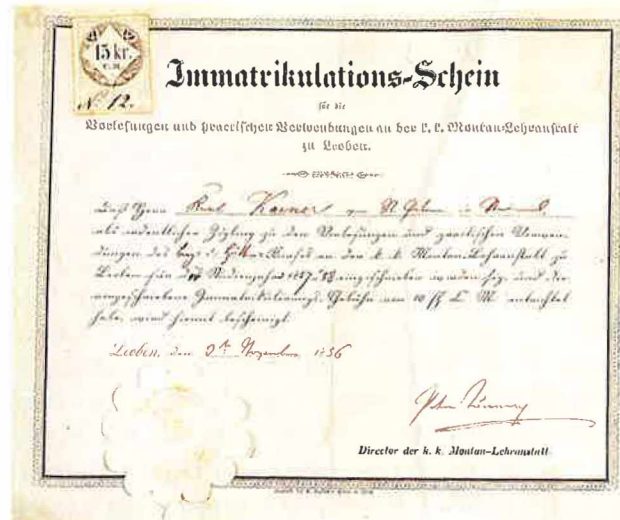 15 kr.
C.M.
No 12.
Immatrikulations-Schein
für die
Vorlesungen und practischen Verwendungen an der k. k. Montan-Lehranstalt
zu Leoben.
Daß Herr Karl Korner von St. in
als ordentlicher Zögling zu den Vorlesungen und practischen Verwen-
dungen des berg- u. Hütten Kurses an der k. k. Montan-Lehranstalt zu
Leoben für das Studienjahr 1857/58 eingeschrieben worden sey, und die
vorgeschriebene Immatrikulirungs-Gebühr von 10 fl C. M. entrichtet
habe, wird hiermit bescheinigt.
Leoben, den November
Director der k. k. Montan-Lehranstalt